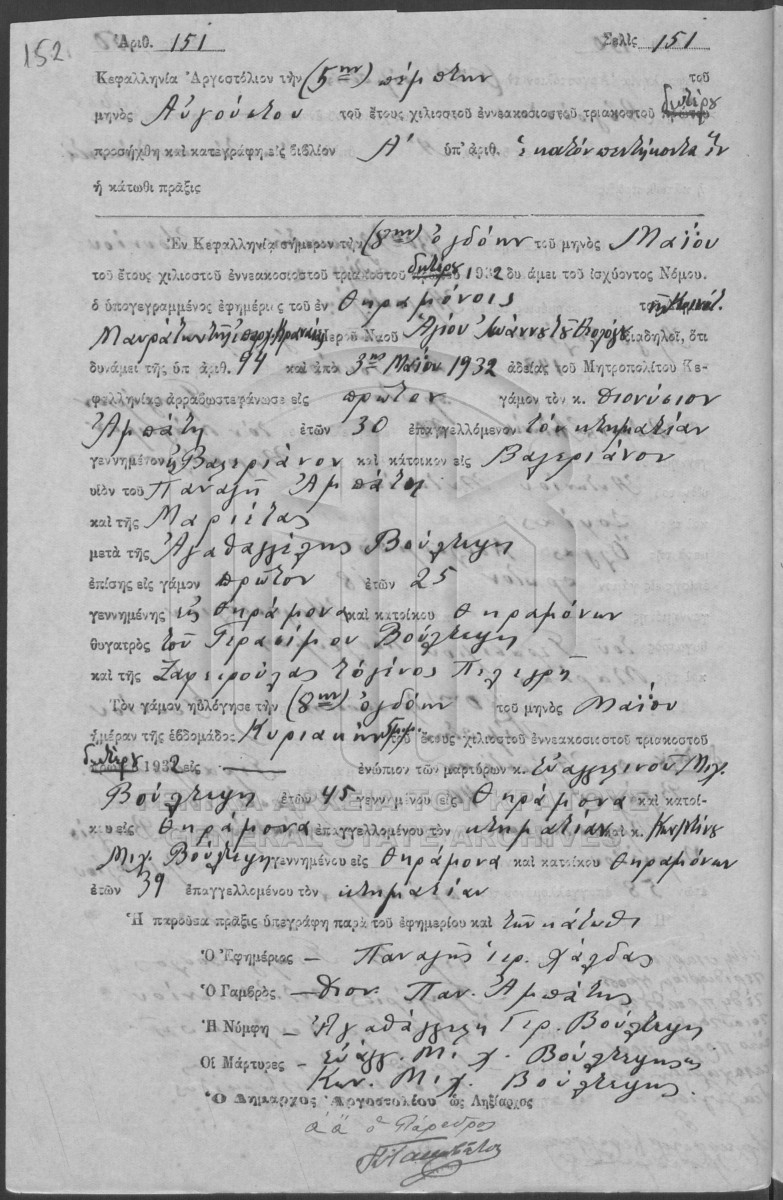 152.
Ἀριθ. 151 Σελὶς 151
Κεφαλληνία Ἀργοστόλιον τὴν (5ην) πέμπτην τοῦ
μηνὸς Αὐγούστου τοῦ ἔτους χιλιοστοῦ ἐννεακοσιοστοῦ τριακοστοῦ δευτέρου
προσήχθη καὶ κατεγράφη εἰς βιβλίον Α' ὑπ' ἀριθ. ἑκατόν πεντήκοντα ἕν
ἡ κάτωθι πρᾶξις
Ἐν Κεφαλληνίᾳ σήμερον τὴν (8ην) ὀγδόην τοῦ μηνὸς Μαΐου
τοῦ ἔτους χιλιοστοῦ ἐννεακοσιοστοῦ τριακοστοῦ δευτέρου 1932 δυνάμει τοῦ ἰσχύοντος Νόμου.
ὁ ὑπογεγραμμένος ἐφημέριος τοῦ ἐν Θηραμόνοις τῆς Κοινότ.
Μαυράτων Ἱεροῦ Ναοῦ Ἁγίου Ἰωάννου τοῦ Θεολόγου διαδηλοῖ, ὅτι
δυνάμει τῆς ὑπ' ἀριθ. 94 καὶ ἀπὸ 3ης Μαΐου 1932 ἀδείας τοῦ Μητροπολίτου Κε-
φαλληνίας ἀρραβωστεφάνωσε εἰς πρῶτον γάμον τὸν κ. Διονύσιον
Ἀμπάτη ἐτῶν 30 ἐπαγγελλόμενον τὸν κτηματίαν
γεννημένον εἰς Βαλεριάνον καὶ κάτοικον εἰς Βαλεριάνον
υἱὸν τοῦ Παναγῆ Ἀμπάτη
καὶ τῆς Μαριέτας
μετὰ τῆς Ἀγαθαγγέλης Βούλτεψη
ἐπίσης εἰς γάμον πρῶτον ἐτῶν 25
γεννημένης εἰς Θηράμονα καὶ κατοίκου Θηραμόνων
θυγατρὸς τοῦ Γερασίμου Βούλτεψη
καὶ τῆς Ζαφειρούλας τὸ γένος
Τὸν γάμον ηὐλόγησε τὴν (8ην) ὀγδόην τοῦ μηνὸς Μαΐου
ἡμέραν τῆς ἑβδομάδος Κυριακήν τοῦ ἔτους χιλιοστοῦ ἐννεακοσιοστοῦ τριακοστοῦ
δευτέρου 1932 εἰς — ἐνώπιον τῶν μαρτύρων κ. Εὐαγγελινοῦ Μιχ.
Βούλτεψη ἐτῶν 45 γεννημένου εἰς Θηράμονα καὶ κατοί-
κου εἰς Θηράμονα ἐπαγγελλομένου τὸν κτηματίαν καὶ κ. Κων/τίνου
Μιχ. Βούλτεψη γεννημένου εἰς Θηράμονα καὶ κατοίκου Θηραμόνων
ἐτῶν 39 ἐπαγγελλομένου τὸν κτηματίαν
Ἡ παροῦσα πρᾶξις ὑπεγράφη παρὰ τοῦ ἐφημερίου καὶ τῶν κάτωθι
Ὁ Ἐφημέριος – Παναγῆς ἱερ. Χάλδας
Ὁ Γαμβρὸς – Διον. Παν. Ἀμπάτης
Ἡ Νύμφη – Ἀγαθάγγελη Γερ. Βούλτεψη
Οἱ Μάρτυρες – Εὐάγγ. Μιχ. Βούλτεψης
Κων. Μιχ. Βούλτεψης.
Ὁ Δήμαρχος Ἀργοστολίου ὡς Ληξίαρχος
ὁ Πάρεδρος
GENERAL STATE ARCHIVES